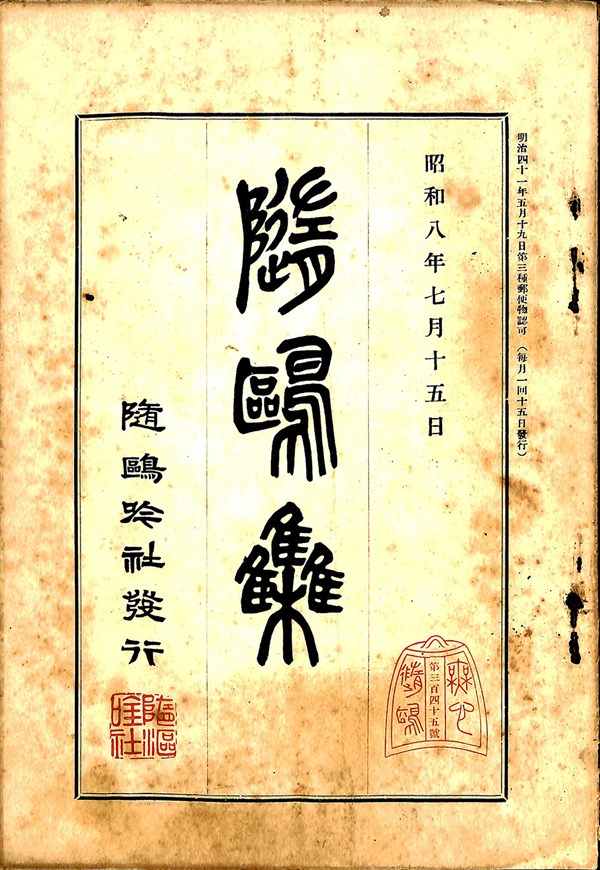 明治四十一年五月十九日第三種郵便物認可（每月一回十五日發行）
昭和八年七月十五日
隨鷗集
無心
第三百四十五號
隨鷗
隨鷗吟社發行